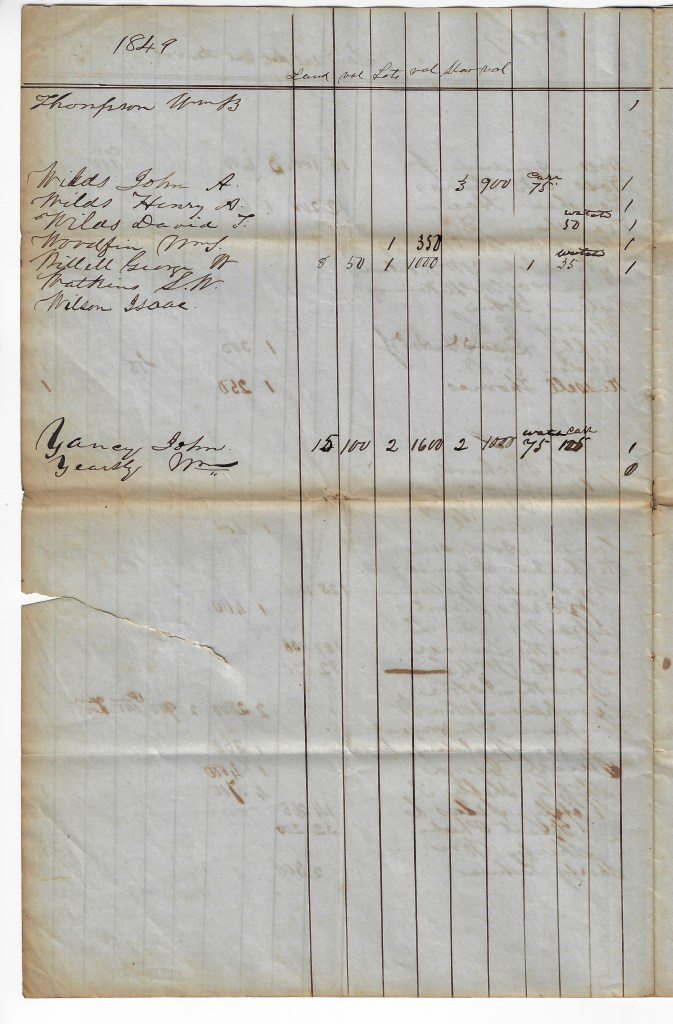 1849
Land val Lots val Slav val
Thompson Wm B 1
Wilds John A. 1/3 900 Carr 75 1
Wilds Henry A. 1
Wilds David T. Watch 50 1
Woodfin Wm S. 1 350 1
Willell George W 8 50 1 1000 1 Watch 25 1
Watkins S. W.
Wilson Isaac.
Yancy John. 15 100 2 1600 2 1000 Watch 75 Carr 125 1
Yearsly Wm 0